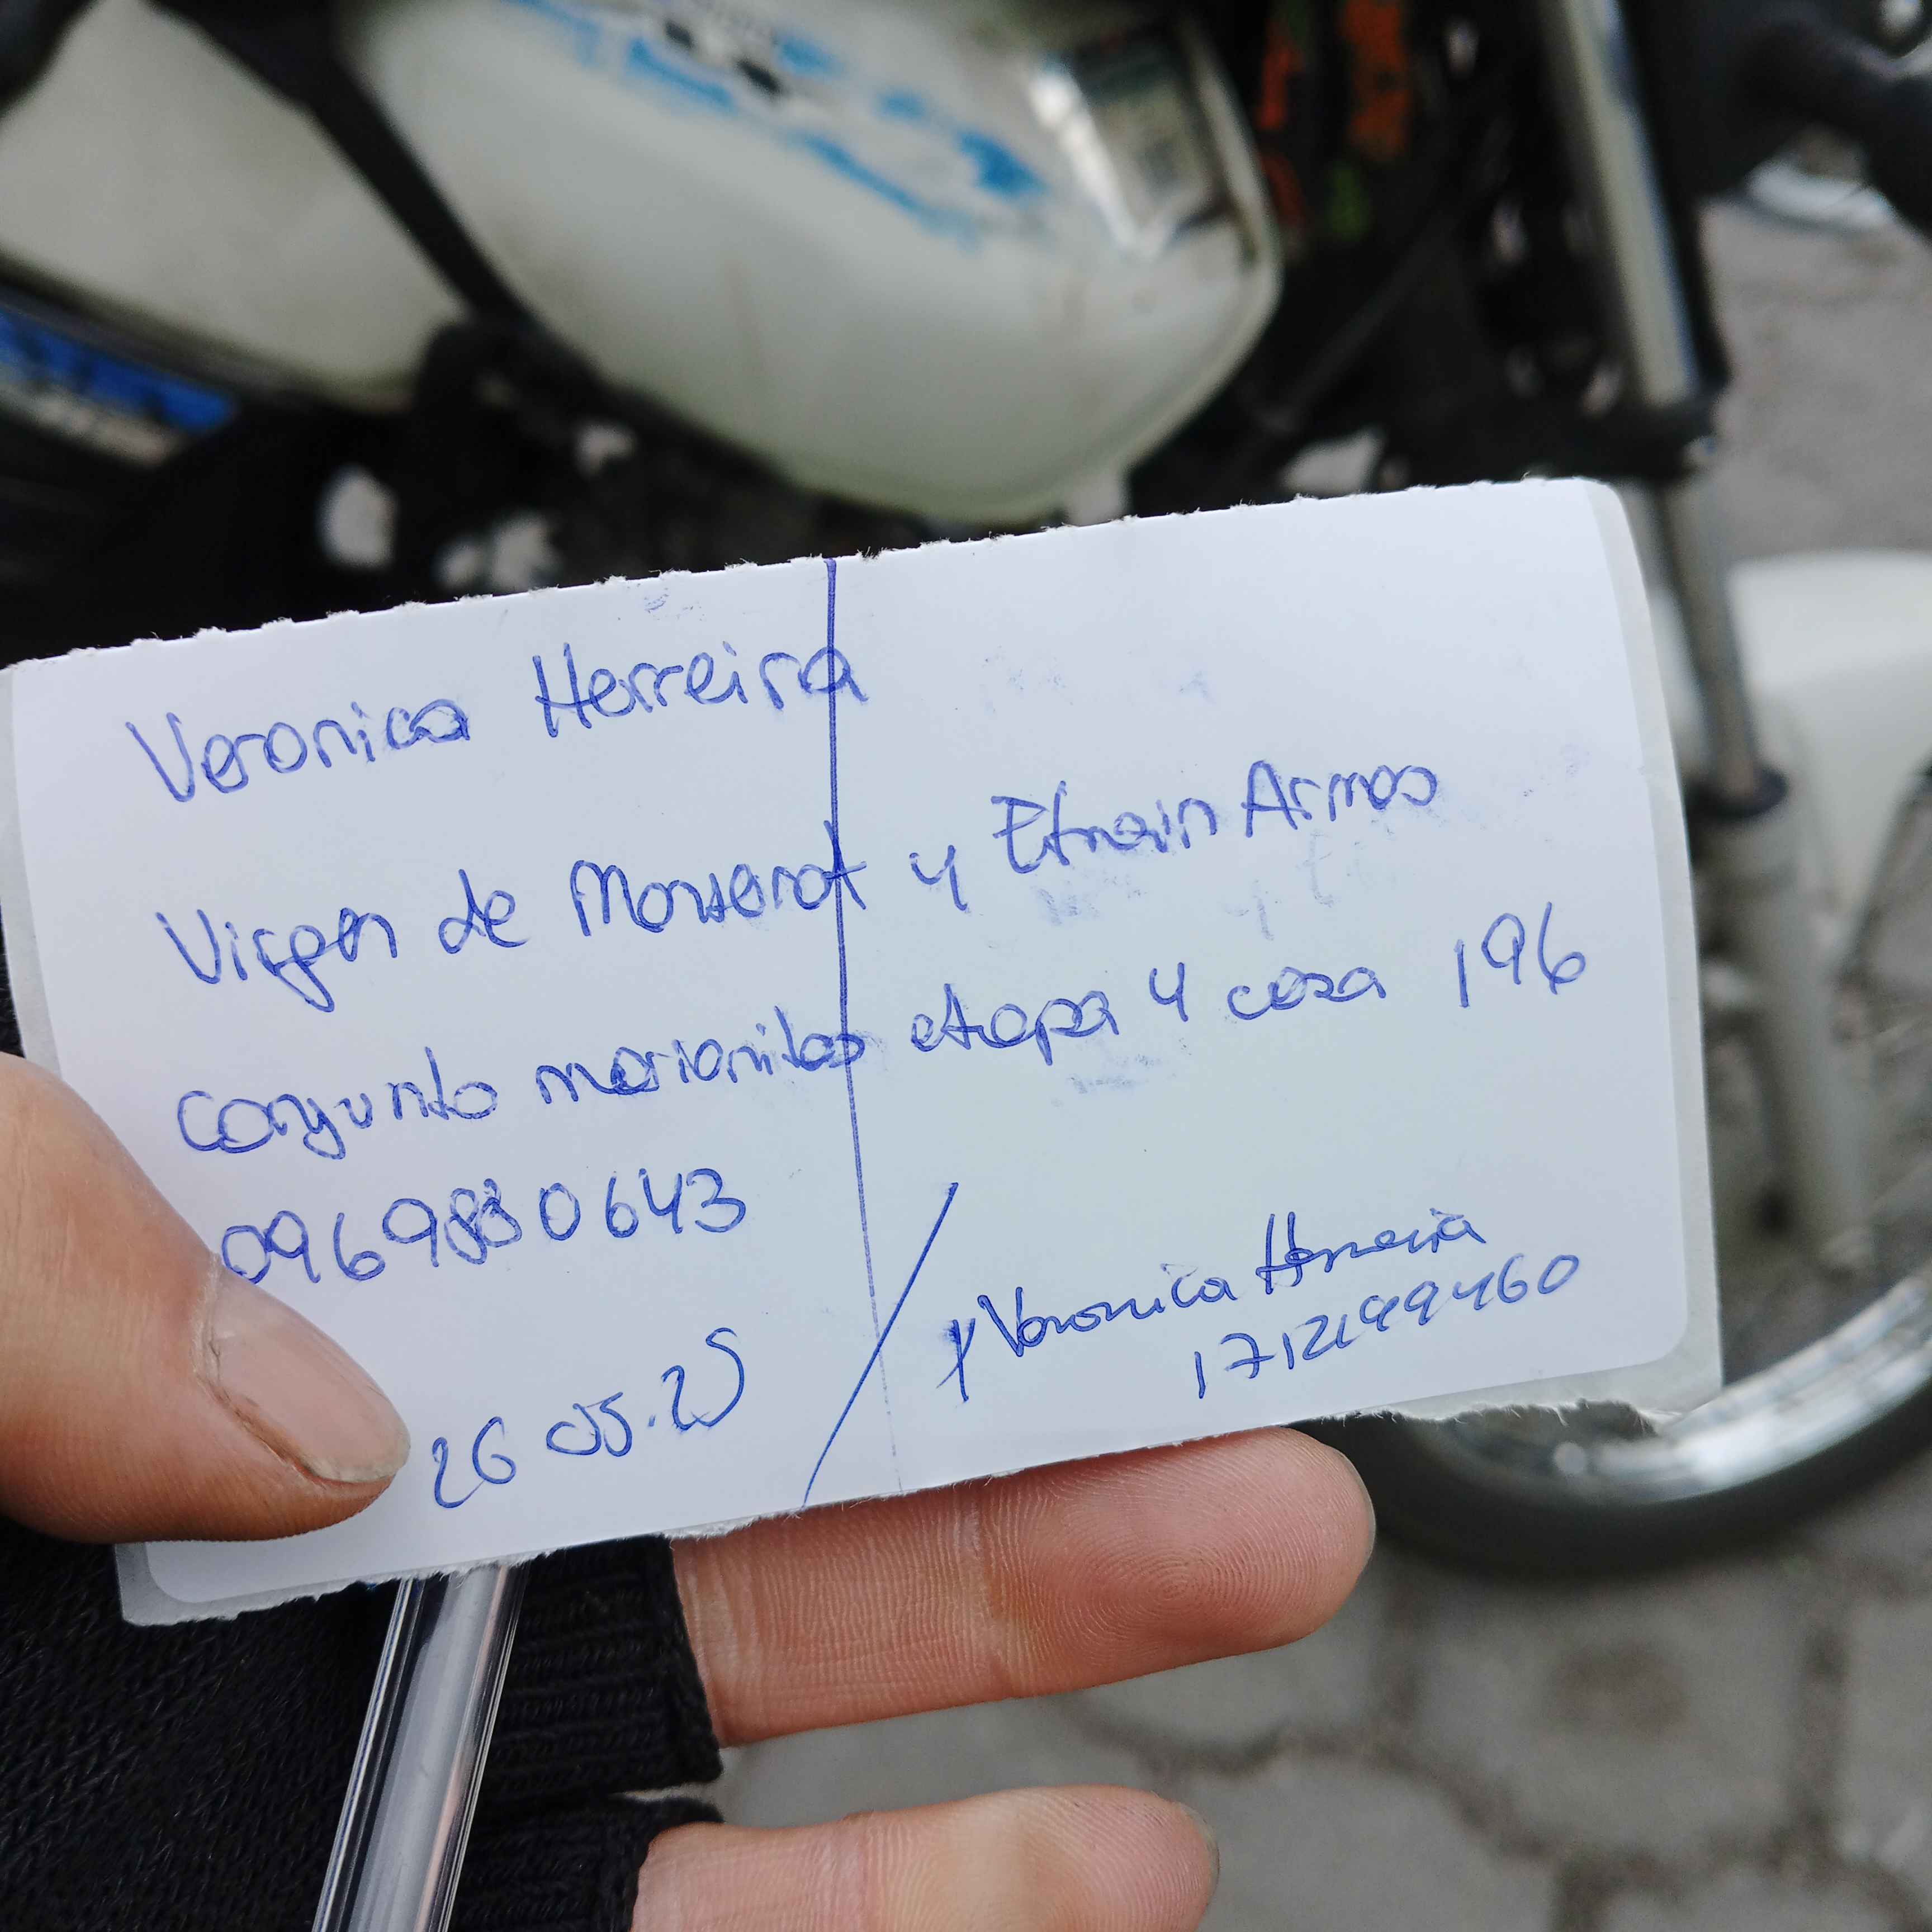 Veronica Herreira
Virgen de Monserat y Efrain Armas
conjunto marianitas etapa 4 casa 196
0969880643
26 05.25
Veronica Herreira
1712499460